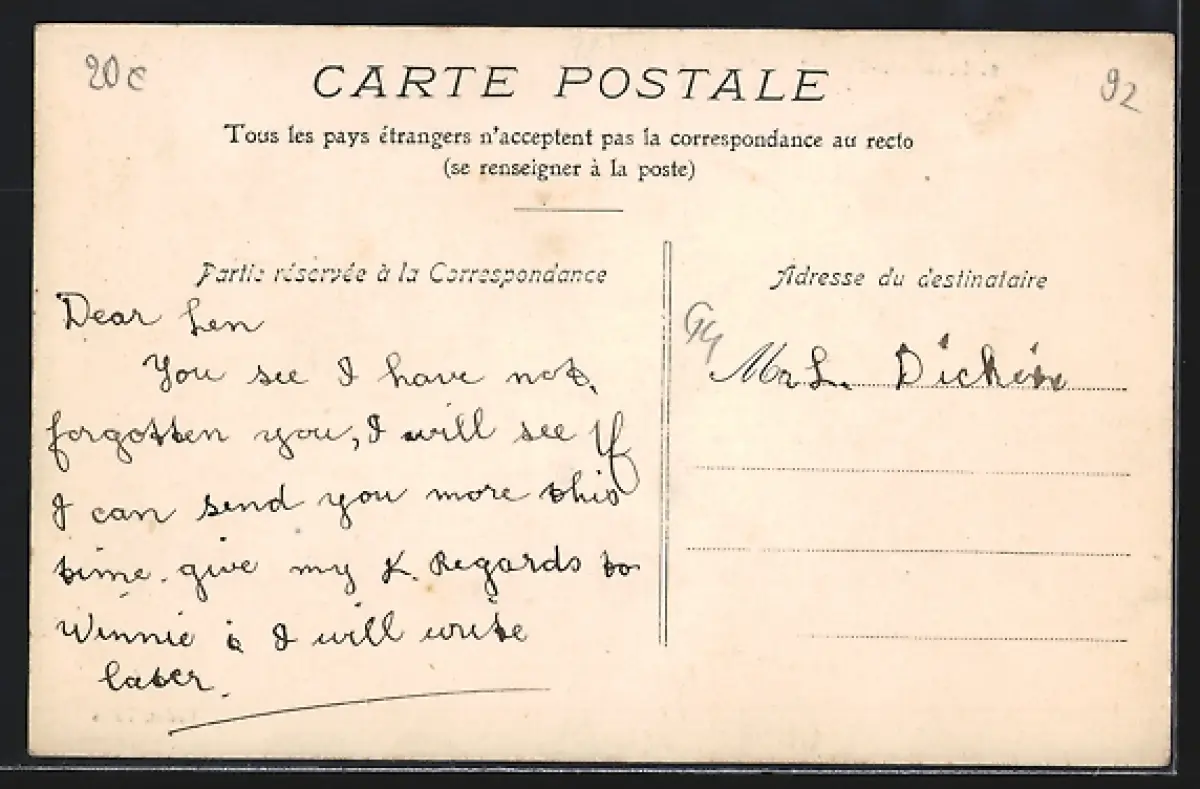 20c
CARTE POSTALE
92
Tous les pays étrangers n'acceptent pas la correspondance au recto
(se renseigner à la poste)
Partie réservée à la Correspondance
Dear Len
You see I have not
forgotten you, I will see if
I can send you more this
time. give my K. Regards to
Winnie & I will write
later.
Adresse du destinataire
Mr L.